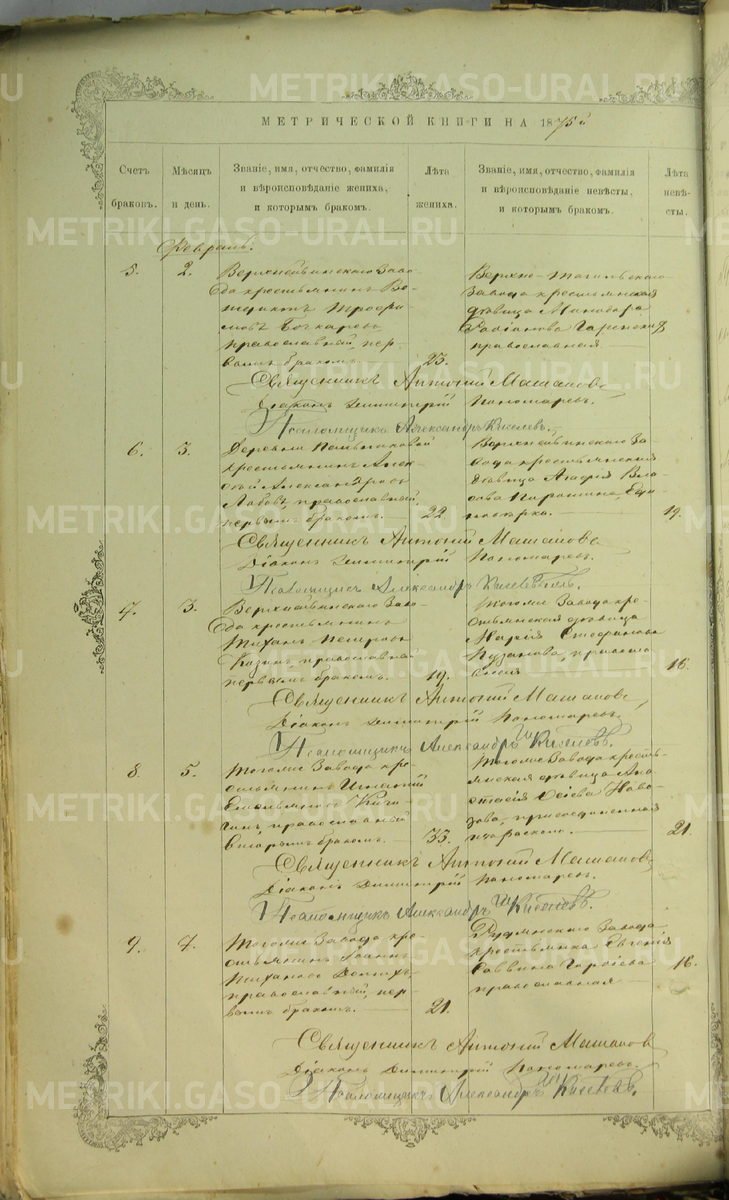 МЕТРИЧЕСКОЙ КНИГИ НА 1875й
Счетъ браковъ.
Мѣсяцъ и день.
Званіе, имя, отчество, фамилія
и вѣроисповѣданіе жениха,
и которымъ бракомъ.
Лѣта
жениха.
Званіе, имя, отчество, фамилія
и вѣроисповѣданіе невѣсты,
и которымъ бракомъ.
Лѣта
невѣ-
сты.
Февраль.
5.
2.
Верхнейвинскаго Заво-
да крестьянинъ Ве-
недиктъ Трофи-
мовъ Бочкаревъ
православный, пер-
вымъ бракомъ.
23.
Верхне-Тагильскаго
Завода крестьянская
дѣвица Минодора
православная
Священникъ Антоній
Діаконъ Димитрій Пономаревъ.
Псаломщикъ Александръ Киселевъ.
6.
3.
Деревни
крестьянинъ Алек-
сѣй Александровъ
православный,
первымъ бракомъ.
22.
Верхнейвинскаго За-
вода крестьянская
дѣвица Агафія Вла-
сова Едино-
вѣрка.
19.
Священникъ Антоній
Діаконъ Димитрій Пономаревъ.
Псаломщикъ Александръ Киселевъ.
7.
3.
Верхнейвинскаго Заво-
да крестьянинъ
Тиханъ Петровъ
Казинъ, православный
первымъ бракомъ.
19.
Тогоже Завода кре-
стьянская дѣвица
Марія Стефанова
Пузанова, правосла-
вная
16.
Священникъ Антоній
Діаконъ Димитрій Пономаревъ.
Псаломщикъ Александръ Киселевъ.
8.
5.
Тогоже Завода кре-
стьянинъ Игнатій
Емельяновъ
православный
вторымъ бракомъ.
33.
Тогоже Завода кресть-
янская дѣвица Ана-
стасія Осіева
присоединенная
изъ раскола.
21.
Священникъ Антоній
Діаконъ Димитрій Пономаревъ.
Псаломщикъ Александръ Киселевъ.
9.
7.
Тогоже Завода кре-
стьянинъ Іоаннъ
Тихановъ
православный, пер-
вымъ бракомъ.
21.
Рудянскаго Завода
крестьянка Евгенія
Саввина
православная
16.
Священникъ Антоній
Діаконъ Димитрій Пономаревъ
Псаломщикъ Александръ Киселевъ.
METRIKI.GASO-URAL.RU
METRIKI.GASO-URAL.RU
METRIKI.GASO-URAL.RU
METRIKI.GASO-URAL.RU
METRIKI.GASO-URAL.RU
METRIKI.GASO-URAL.RU
METRIKI.GASO-URAL.RU
METRIKI.GASO-URAL.RU